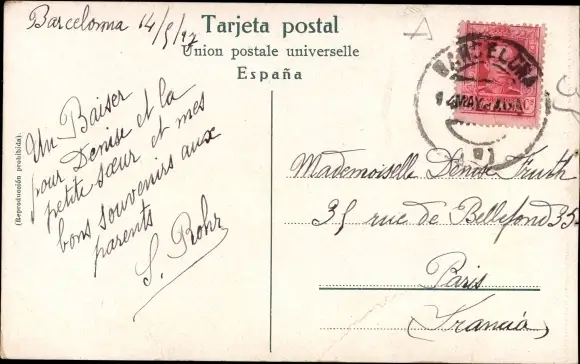 Barcelonna 14/5/
Tarjeta postal
Union postale universelle
España
BARCELONA
14 MAY
(Reproducción prohibida).
Un Baiser
pour Denise et la
petite sœur et mes
bons souvenirs aux
parents
S. Rohr
Mademoiselle Denise
35 rue de Bellefond 35
Paris
(Francia)